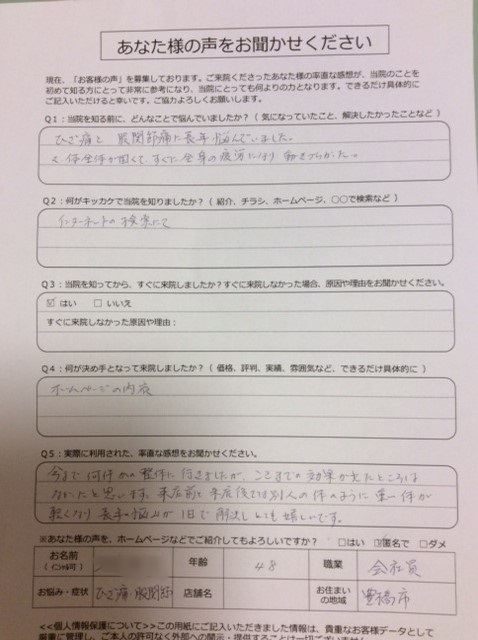 あなた様の声をお聞かせください
現在、「お客様の声」を募集しております。ご来院くださったあなた様の率直な感想が、当院のことを
初めて知る方にとって非常に参考になり、当院にとっても何よりの力となります。できるだけ具体的に
ご記入いただけると幸いです。ご協力よろしくお願いします。
Q1：当院を知る前に、どんなことで悩んでいましたか？（ 気になっていたこと、解決したかったことなど ）
ひざ痛と 股関節痛に長年悩んでいました。
体全体が固くて、すぐに全身の疲労になり 動きづらかった
Q2：何がキッカケで当院を知りましたか？（ 紹介、チラシ、ホームページ、〇〇で検索など ）
インターネットの検索にて
Q3：当院を知ってから、すぐに来院しましたか？すぐに来院しなかった場合、原因や理由をお聞かせください。
☑ はい ☐ いいえ
すぐに来院しなかった原因や理由：
Q4：何が決め手となって来院しましたか？（ 価格、評判、実績、雰囲気など、できるだけ具体的に ）
ホームページの内容
Q5：実際に利用された、率直な感想をお聞かせください。
今まで何件かの整体に行きましたが、ここまでの効果が出たところは
なかったと思います。来店前と来店後では別人の体のように 体が
軽くなり 長年の悩みが1日で解決しとても嬉しいです。
※あなた様の声を、ホームページなどでご紹介してもよろしいですか？ ☐はい ☑匿名で ☐ダメ
お名前 年齢 48 職業 会社員
（イニシャル可）
お悩み・症状 ひざ痛・股関節 店舗名 お住まい 豊橋市
の地域
<<個人情報保護について>>この用紙にご記入いただきました情報は、貴重なお客様データとして
厳重に管理し、ご本人の許可なく外部への開示・提供することは一切ございません。